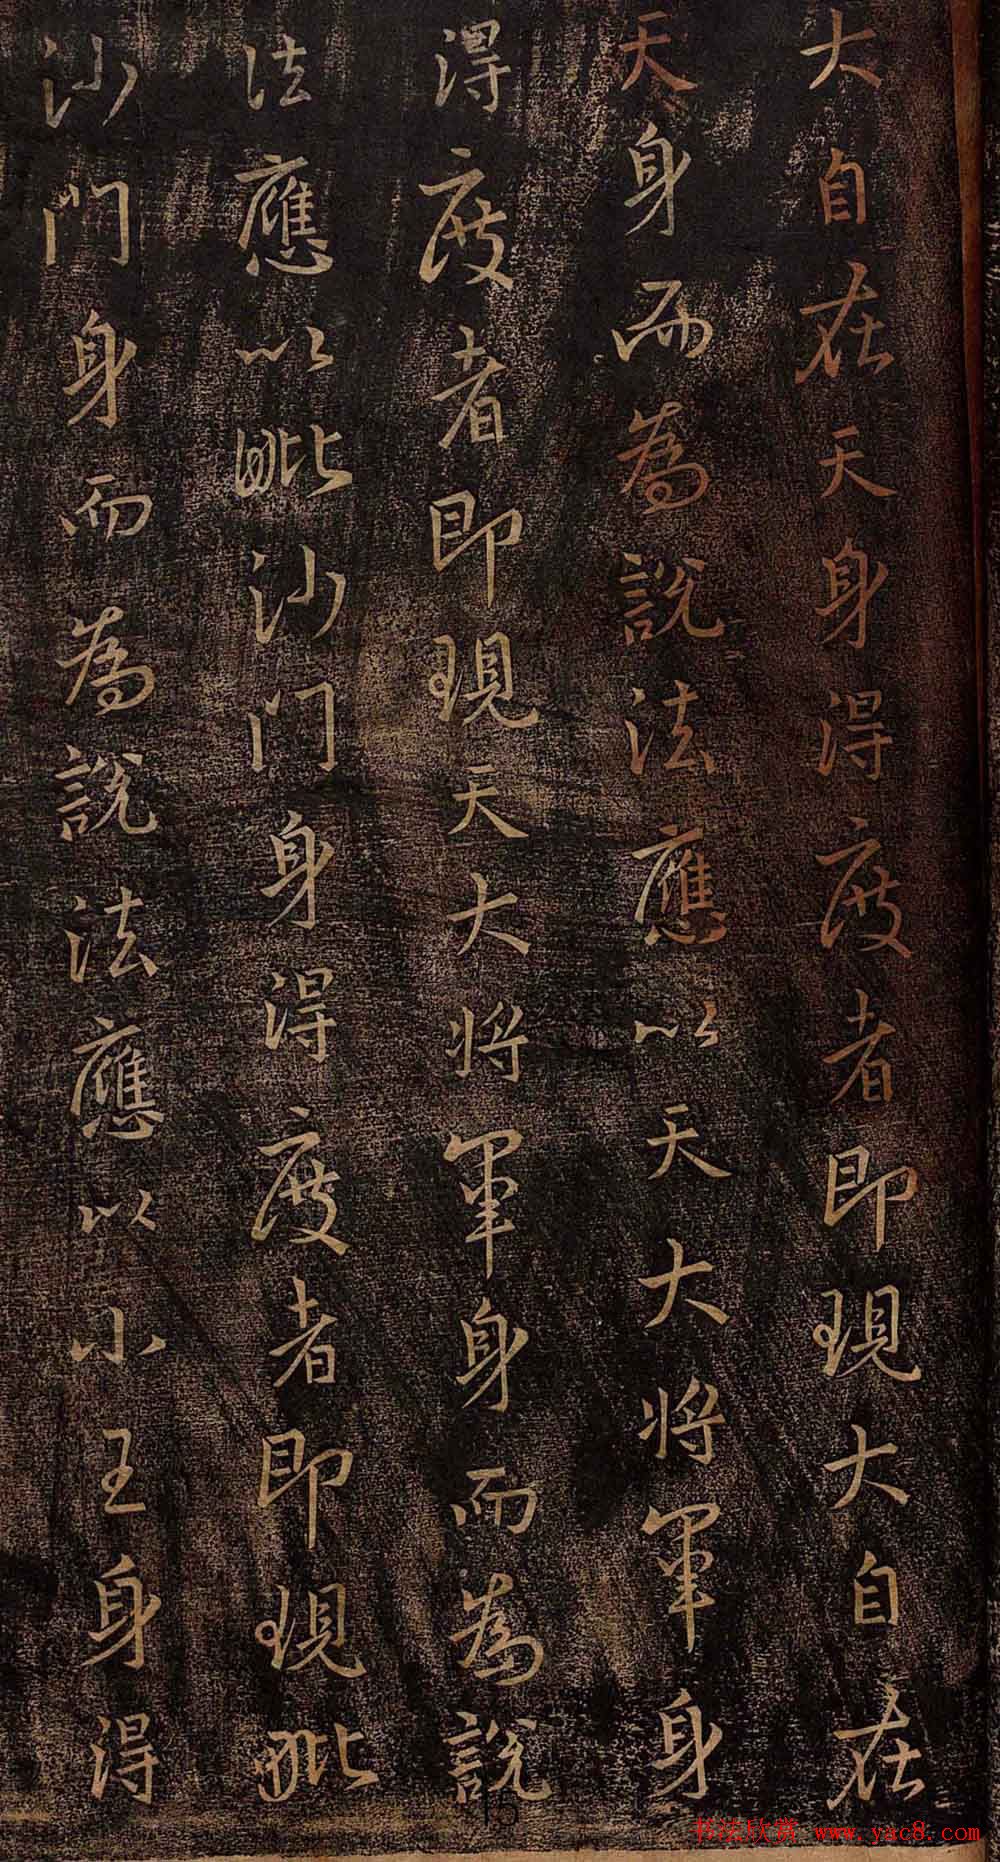 大自在天身得度者即現大自在
天身而為說法應以天大將軍身
得度者即現天大將軍身而為說
法應以毗沙門身得度者即現毗
沙門身而為說法應以小王身得
15
书法欣赏 www.yac8.com